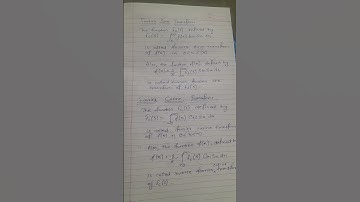 Fourier Sine Transform
The function fs(s) defined by
fs(s) = ∫ f(x) Sin sx dx
is called fourier sine transform
of f(x) in 0<x<∞
Also, the function f(x) defined by
f(x) = 2/π ∫ fs(s) Sin sx ds
is called inverse fourier sine
transform of fs(s).
Fourier Cosine Transform
The function fc(s) defined by
fc(s) = ∫ f(x) Cos sx dx
is called fourier cosine transform
of f(x) in 0<x<∞
Also, the function f(x), defined by
f(x) = 2/π ∫ fc(s) Cos sx ds
is called inverse fourier cosine transform
of fc(s).